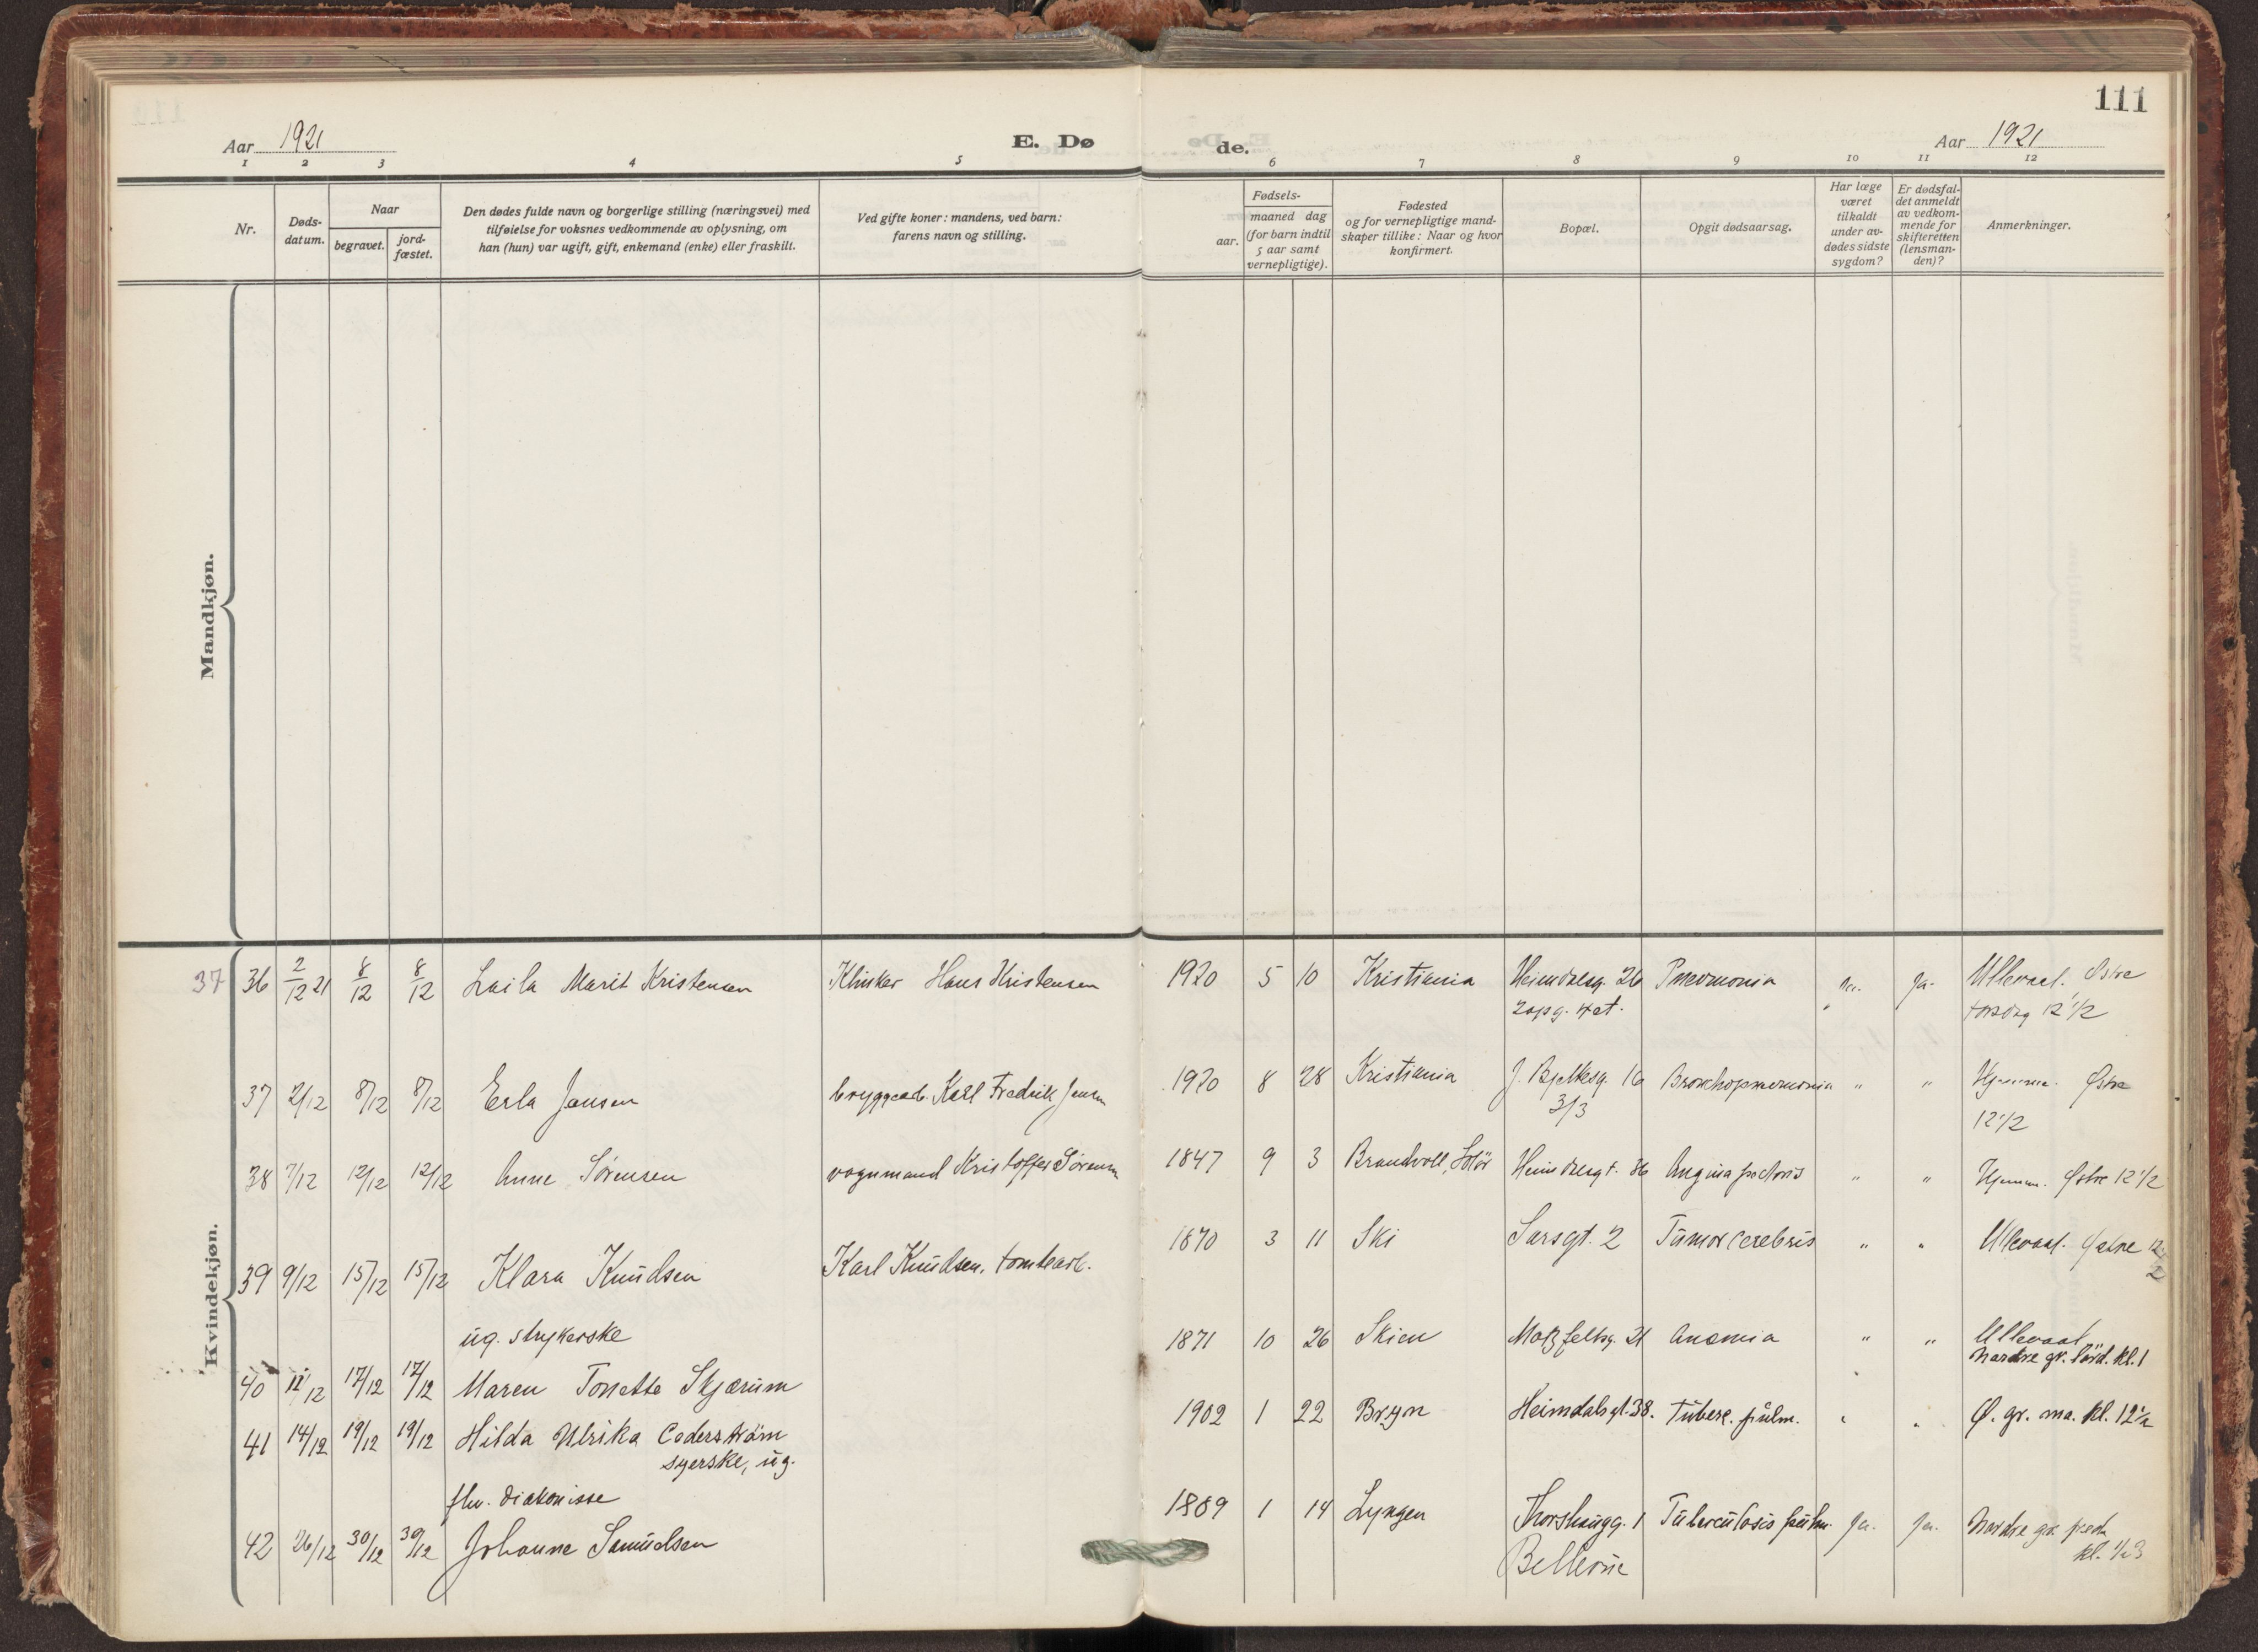 111
Aar 1921
E. Dø
de.
Aar 1921
1 2 3 4 5 6 7 8 9 10 11 12
Nr.
Døds-
datum.
Naar
begravet.
jord-
fæstet.
Den dødes fulde navn og borgerlige stilling (næringsvei) med
tilføielse for voksnes vedkommende av oplysning, om
han (hun) var ugift, gift, enkemand (enke) eller fraskilt.
Ved gifte koner: mandens, ved barn:
farens navn og stilling.
Fødsels-
aar.
maaned dag
(for barn indtil
5 aar samt
vernepligtige).
Fødested
og for vernepligtige mand-
skaper tillike: Naar og hvor
konfirmert.
Bopæl.
Opgit dødsaarsag.
Har læge
været
tilkaldt
under av-
dødes sidste
sygdom?
Er dødsfal-
det anmeldt
av vedkom-
mende for
skifteretten
(lensman-
den)?
Anmerkninger.
Mandkjøn.
Kvindekjøn.
37 36 2/12 21 8/12 8/12 Laila Marit Kristensen Klinker Hans Kristensen 1920 5 10 Kristiania Heimdalsg. 26 Pneumonia Ja. Ullevaal. Østre
2 opg. 4 et. torsdag 12 1/2
37 2/12 8/12 8/12 Erla Jensen bryggearb. Karl Fredrik Jensen 1920 8 28 Kristiania J. Bjelkesg. 16 Bronchopneumonia " " Hjemme. Østre
3/3 12 1/2
38 7/12 12/12 12/12 Anne Sørensen vognmand Kristoffer Sørensen 1847 9 3 Brandvoll, Solør Heimdalsgt. 36 Angina pectoris " " Hjemme. Østre 12 1/2
39 9/12 15/12 15/12 Klara Knudsen Karl Knudsen, tomtearb. 1870 3 11 Ski Sarsgt. 2 Tumor Cerebris " " Ullevaal. Østre 12 1/2
ug. strykerske
40 11/12 17/12 17/12 Maren Tonette Skjærum 1871 10 26 Skien Motzfeltsg. 21 Anæmia " " Ullevaal
Nordre gr. Lørd. kl. 1
41 14/12 19/12 19/12 Hilda Ulrika Cederström 1902 1 22 Bryn Heimdalsgt. 38. Tuberc. pulm. " " Ø. gr. ma. kl. 12 1/2
syerske, ug.
fhv. diakonisse
42 26/12 30/12 30/12 Johanne Samuelsen 1889 1 14 Lyngen Thorshaugg. 1 Tuberculosis pulm. Ja. Ja. Nordre gr. fred.
Bellevue kl. 1/2 3